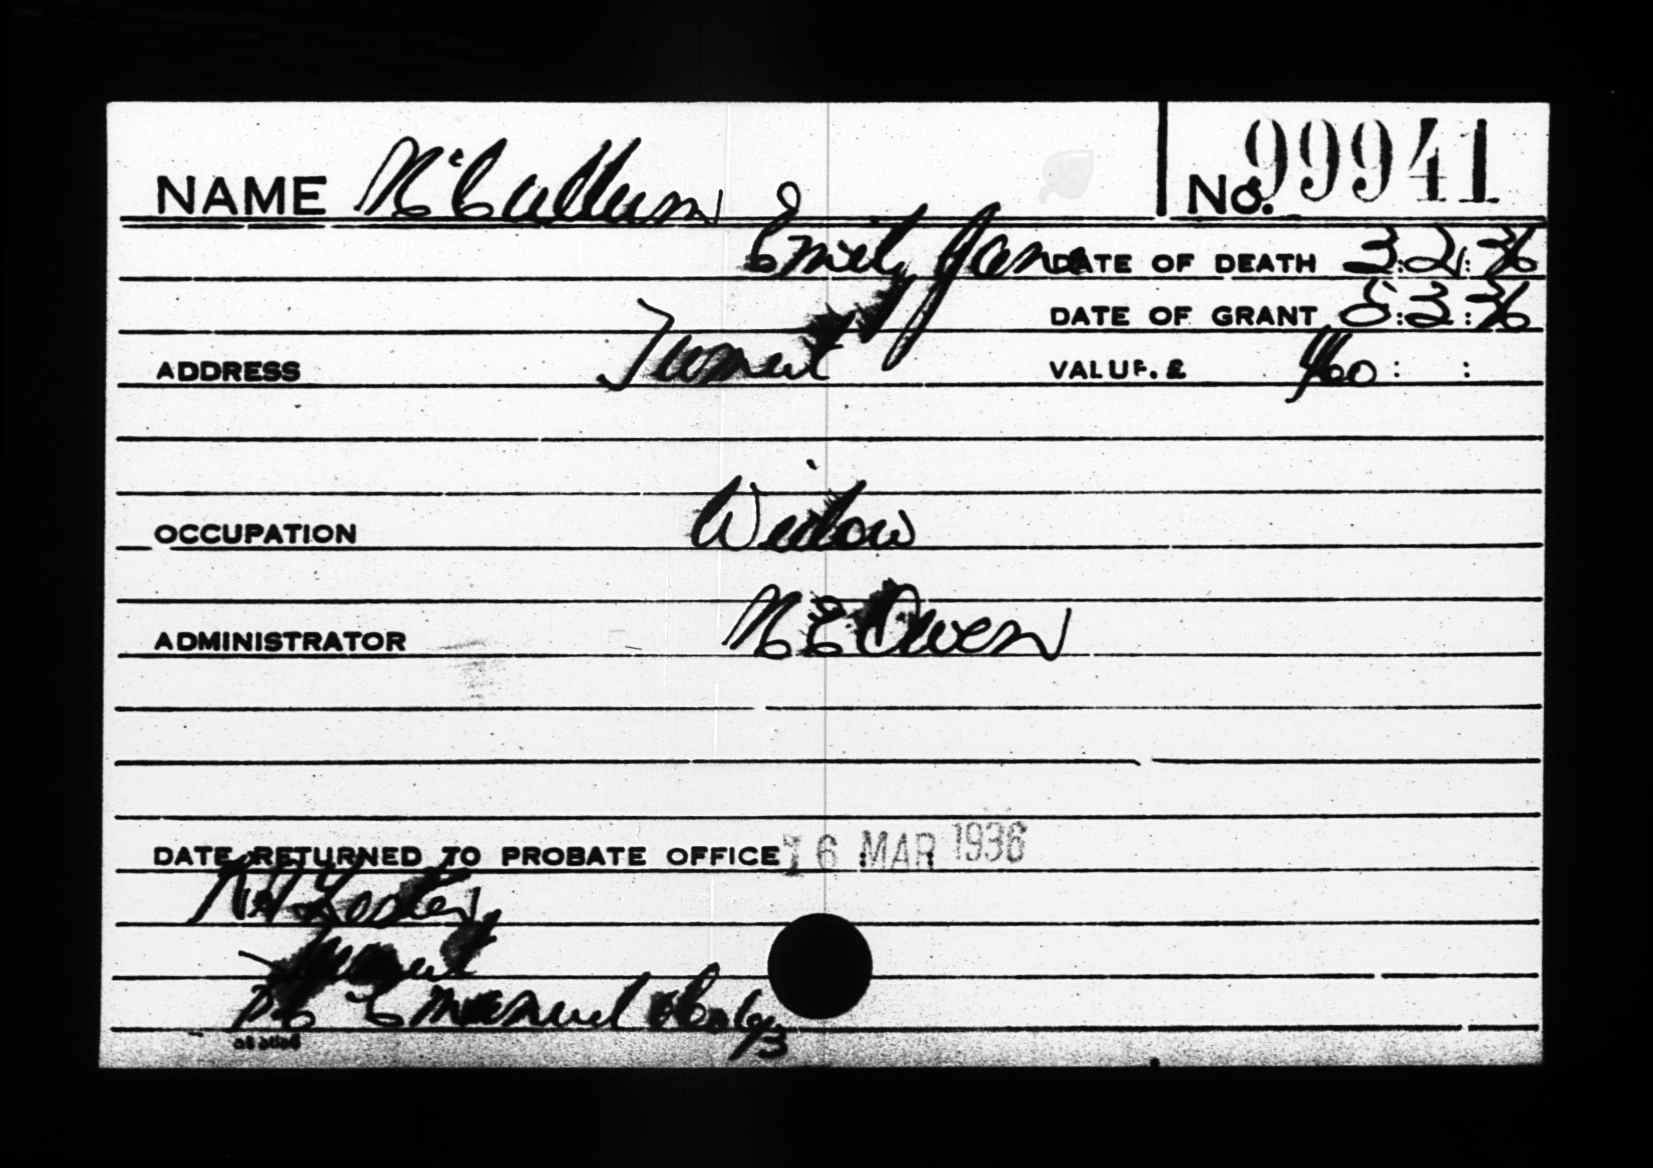 NAME McCallum No. 99941
Emily Jane DATE OF DEATH 3:2:36
DATE OF GRANT 5:3:36
ADDRESS Tumut VALUE. £ 460 : :
OCCUPATION Widow
ADMINISTRATOR N E Owen
DATE RETURNED TO PROBATE OFFICE 16 MAR 1936
Tumut
Emanuel